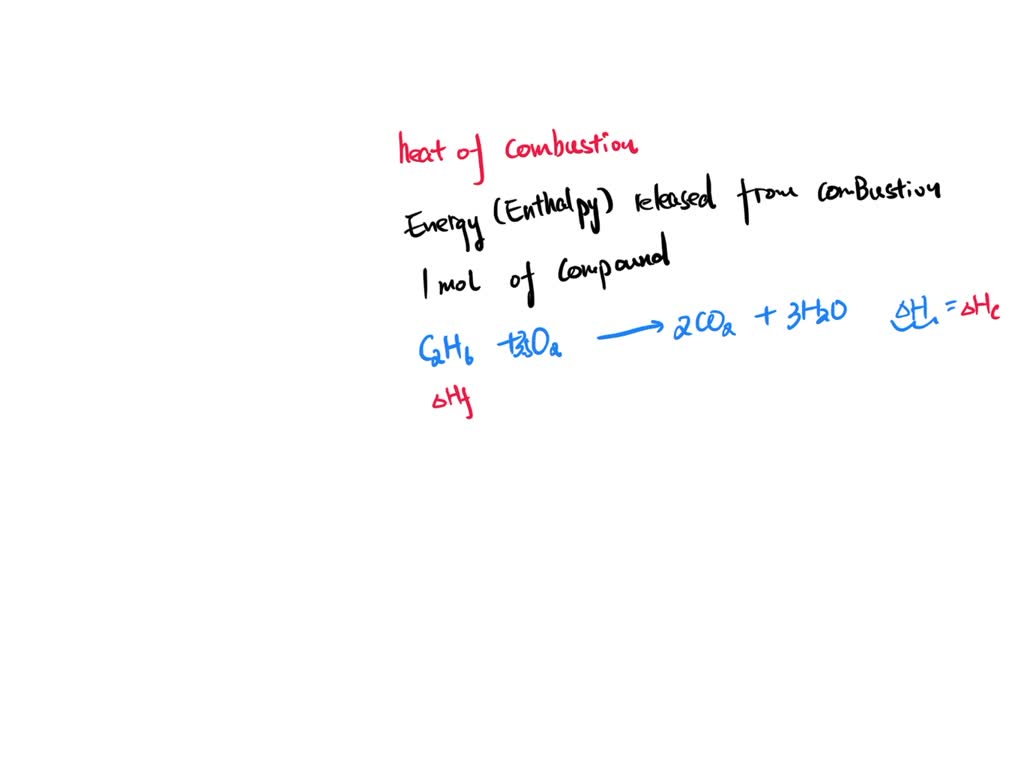 heat of combustion
Energy (Enthalpy) released from comBustion
1 mol of compound
C2H6 + O2 → 2CO2 + 3H2O ΔH = ΔHc
ΔHf